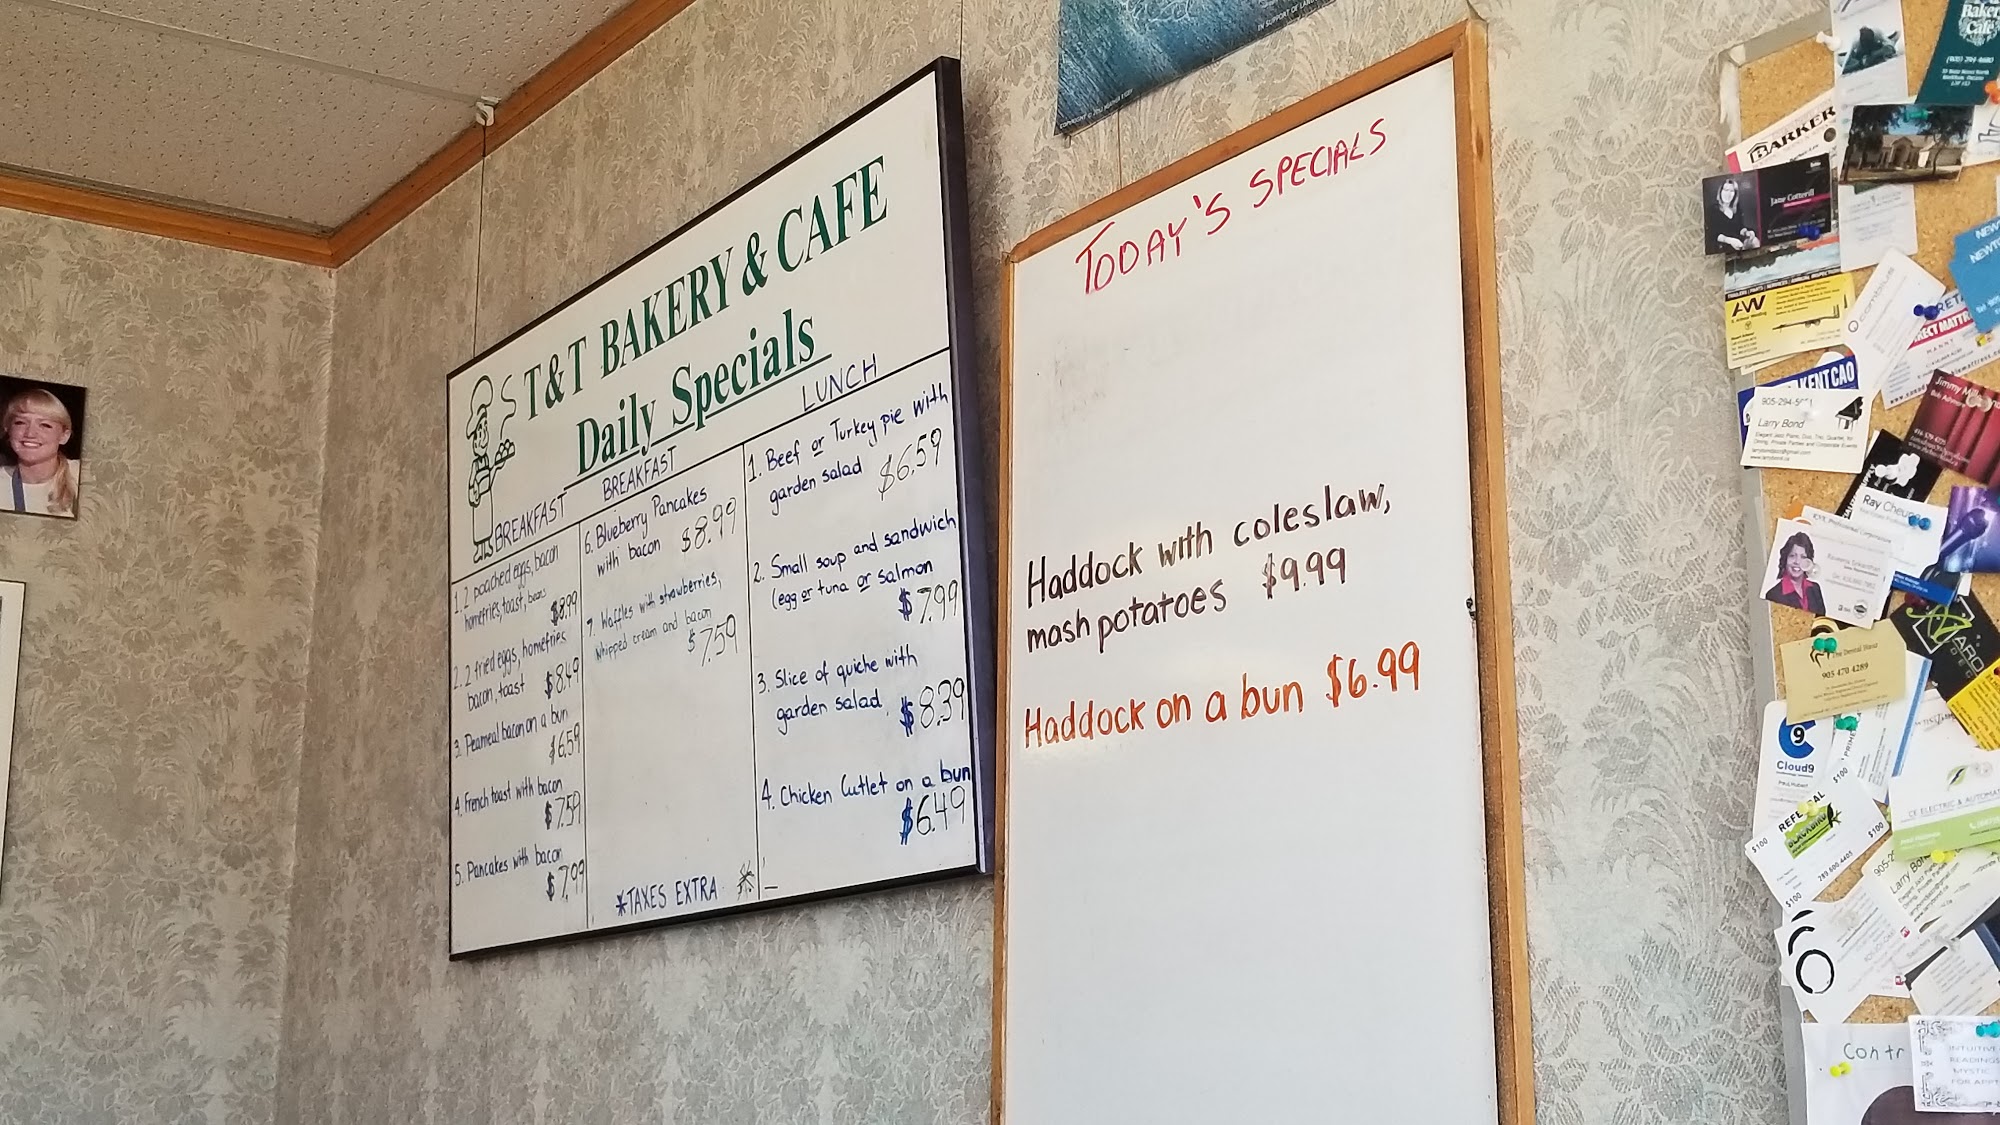 T&T BAKERY & CAFE
Daily Specials
BREAKFAST
1. 2 poached eggs, bacon
homefries, toast, beans
$8.99
2. 2 fried eggs, homefries
bacon, toast $8.49
3. Peameal bacon on a bun
$6.59
4. French toast with bacon
$7.59
5. Pancakes with bacon
$7.99
BREAKFAST
6. Blueberry Pancakes
with bacon $8.99
7. Waffles with strawberries,
whipped cream and bacon
$7.59
*TAXES EXTRA *
LUNCH
1. Beef or Turkey pie with
garden salad $6.59
2. Small soup and sandwich
(egg or tuna or salmon
$7.99
3. Slice of quiche with
garden salad $8.39
4. Chicken Cutlet on a bun
$6.49
IN SUPPORT OF
TODAY'S SPECIALS
Haddock with coleslaw,
mash potatoes $9.99
Haddock on a bun $6.99
Bakery
Cafe
(905) 294-
BARKER
Jane Cotterill
AW
KENT CAO
905-294-
Larry Bond
www.larrybond.ca
Jimmy
Ray Cheung
The Dental Hand
905 470 4289
9
Cloud9
REFERRAL
$100
$100
$100
289.600.4405
CF ELECTRIC & AUTOMAT
Larry Bon
Contr
INTUITIVE
READINGS
MYSTIC
FOR APPT